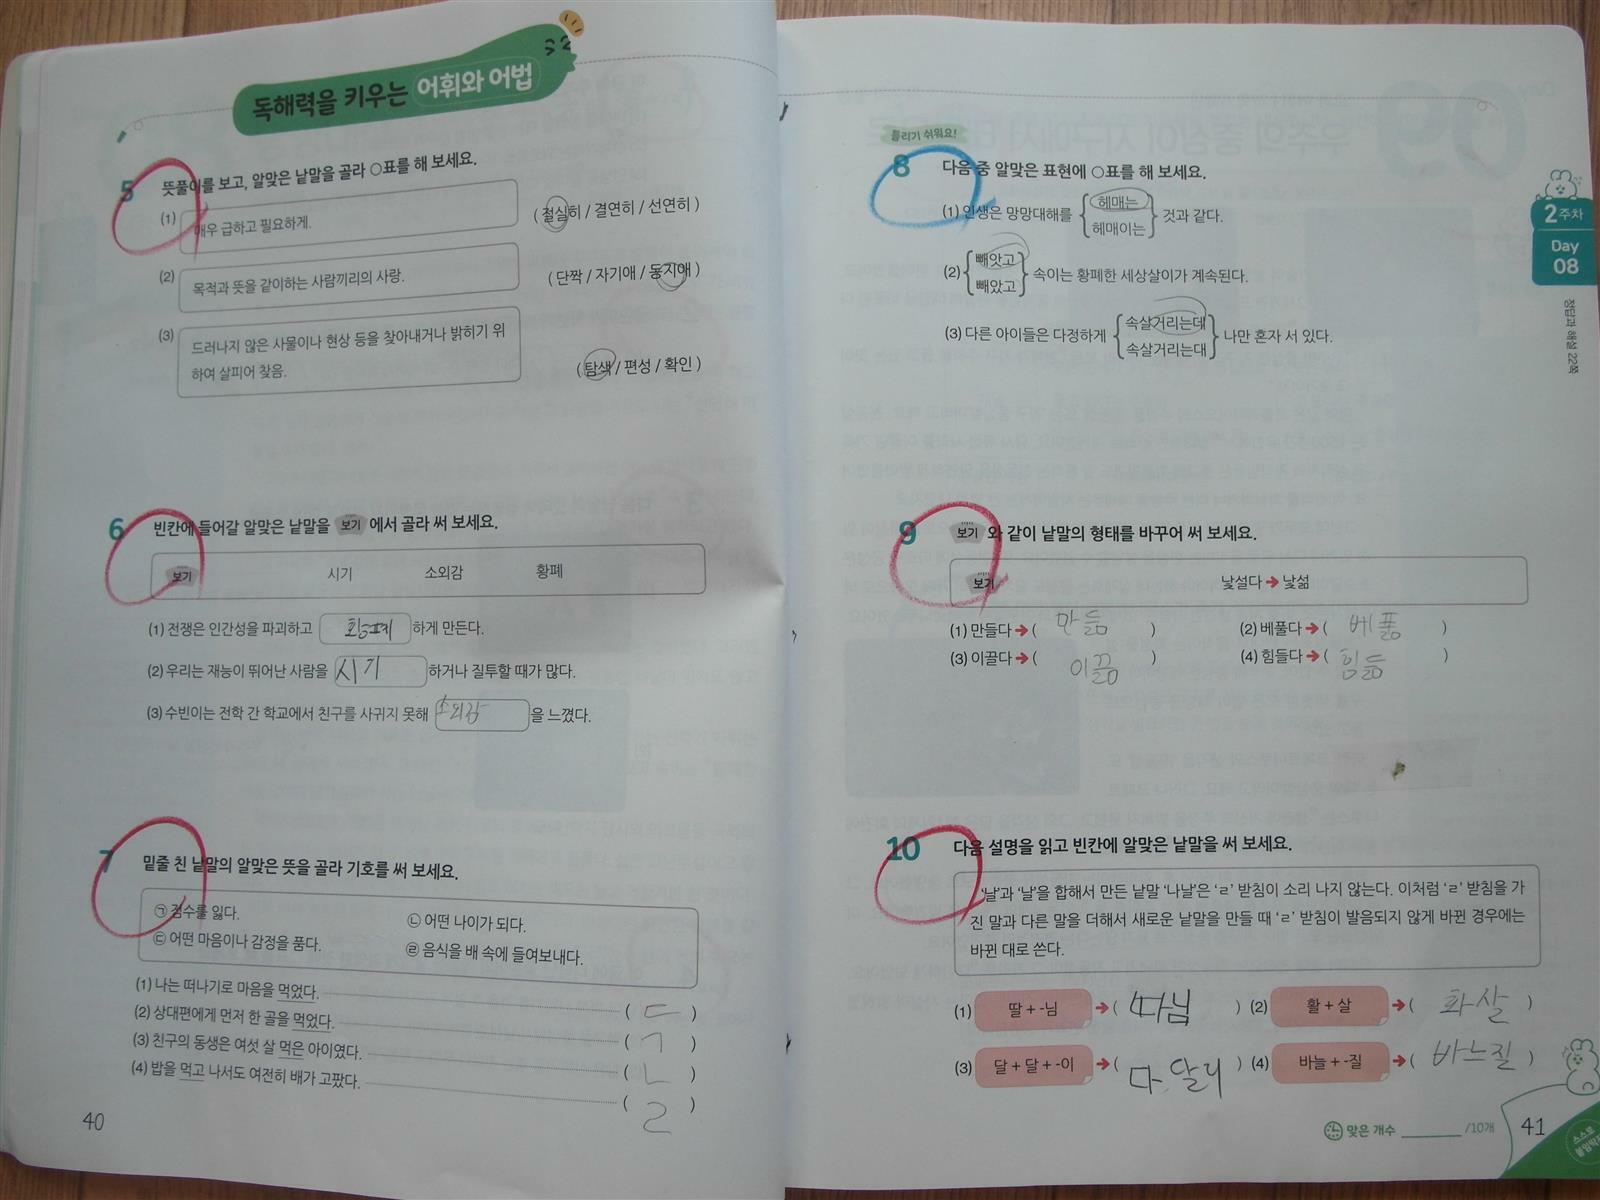 독해력을 키우는 어휘와 어법
5 뜻풀이를 보고, 알맞은 낱말을 골라 ○표를 해 보세요.
(1) 매우 급하고 필요하게. ( 절실히 / 결연히 / 선연히 )
(2) 목적과 뜻을 같이하는 사람끼리의 사랑. ( 단짝 / 자기애 / 동지애 )
(3) 드러나지 않은 사물이나 현상 등을 찾아내거나 밝히기 위
하여 살피어 찾음. ( 탐색 / 편성 / 확인 )
6 빈칸에 들어갈 알맞은 낱말을 보기 에서 골라 써 보세요.
보기 시기 소외감 황폐
(1) 전쟁은 인간성을 파괴하고 황폐 하게 만든다.
(2) 우리는 재능이 뛰어난 사람을 시기 하거나 질투할 때가 많다.
(3) 수빈이는 전학 간 학교에서 친구를 사귀지 못해 소외감 을 느꼈다.
7 밑줄 친 낱말의 알맞은 뜻을 골라 기호를 써 보세요.
㉠ 점수를 잃다. ㉡ 어떤 나이가 되다.
㉢ 어떤 마음이나 감정을 품다. ㉣ 음식을 배 속에 들여보내다.
(1) 나는 떠나기로 마음을 먹었다. ( ㄷ )
(2) 상대편에게 먼저 한 골을 먹었다. ( ㄱ )
(3) 친구의 동생은 여섯 살 먹은 아이였다. ( ㄴ )
(4) 밥을 먹고 나서도 여전히 배가 고팠다. ( ㄹ )
40
틀리기 쉬워요!
8 다음 중 알맞은 표현에 ○표를 해 보세요.
(1) 인생은 망망대해를 { 헤매는
헤매이는 } 것과 같다.
(2) { 빼앗고
빼았고 } 속이는 황폐한 세상살이가 계속된다.
(3) 다른 아이들은 다정하게 { 속살거리는데
속살거리는대 } 나만 혼자 서 있다.
9 보기 와 같이 낱말의 형태를 바꾸어 써 보세요.
보기 낯설다 → 낯섦
(1) 만들다 → ( 만듦 ) (2) 베풀다 → ( 베풂 )
(3) 이끌다 → ( 이끎 ) (4) 힘들다 → ( 힘듦 )
10 다음 설명을 읽고 빈칸에 알맞은 낱말을 써 보세요.
‘날’과 ‘날’을 합해서 만든 낱말 ‘나날’은 ‘ㄹ’ 받침이 소리 나지 않는다. 이처럼 ‘ㄹ’ 받침을 가
진 말과 다른 말을 더해서 새로운 낱말을 만들 때 ‘ㄹ’ 받침이 발음되지 않게 바뀐 경우에는
바뀐 대로 쓴다.
(1) 딸 + -님 → ( 따님 ) (2) 활 + 살 → ( 화살 )
(3) 달 + 달 + -이 → ( 다달이 ) (4) 바늘 + -질 → ( 바느질 )
맞은 개수 /10개
41
2주차
Day
08
정답과 해설 22쪽
스스로
붙임딱지